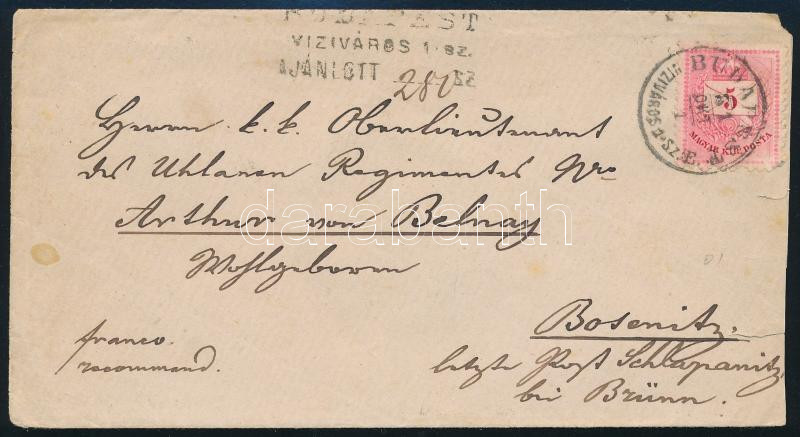 BUDAPEST
VIZIVÁROS 1. sz.
AJÁNLOTT 281 SZ
BUDAPEST
VIZIVÁROS
5
MAGYAR KIR. POSTA
Herrn k. k. Oberlieutenant
des Uhlanen Regimentes Nro
Arthur von Belnay
Wohlgeboren
darabanth
franco.
recommand.
Bosenitz.
letzte Post Schlapanitz
bei Brünn.